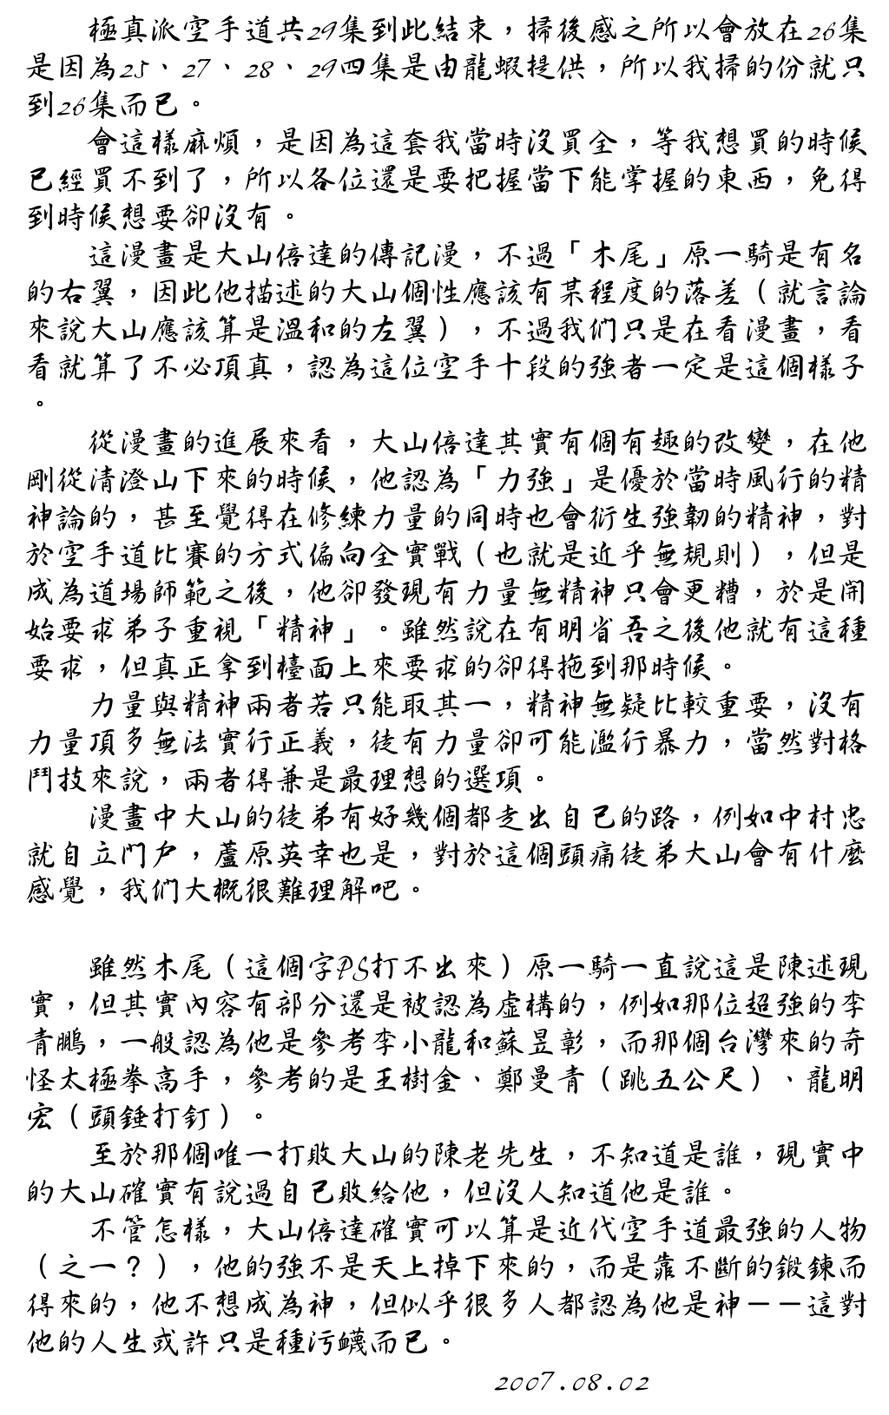 極真派空手道共29集到此結束，掃後感之所以會放在26集
是因為25、27、28、29四集是由龍蝦提供，所以我掃的份就只
到26集而已。
會這樣麻煩，是因為這套我當時沒買全，等我想買的時候
已經買不到了，所以各位還是要把握當下能掌握的東西，免得
到時候想要卻沒有。
這漫畫是大山倍達的傳記漫，不過「木尾」原一騎是有名
的右翼，因此他描述的大山個性應該有某程度的落差（就言論
來說大山應該算是溫和的左翼），不過我們只是在看漫畫，看
看就算了不必頂真，認為這位空手十段的強者一定是這個樣子
。
從漫畫的進展來看，大山倍達其實有個有趣的改變，在他
剛從清澄山下來的時候，他認為「力強」是優於當時風行的精
神論的，甚至覺得在修練力量的同時也會衍生強韌的精神，對
於空手道比賽的方式偏向全實戰（也就是近乎無規則），但是
成為道場師範之後，他卻發現有力量無精神只會更糟，於是開
始要求弟子重視「精神」。雖然說在有明省吾之後他就有這種
要求，但真正拿到檯面上來要求的卻得拖到那時候。
力量與精神兩者若只能取其一，精神無疑比較重要，沒有
力量頂多無法實行正義，徒有力量卻可能濫行暴力，當然對格
鬥技來說，兩者得兼是最理想的選項。
漫畫中大山的徒弟有好幾個都走出自己的路，例如中村忠
就自立門戶，蘆原英幸也是，對於這個頭痛徒弟大山會有什麼
感覺，我們大概很難理解吧。
雖然木尾（這個字PS打不出來）原一騎一直說這是陳述現
實，但其實內容有部分還是被認為虛構的，例如那位超強的李
青鵬，一般認為他是參考李小龍和蘇昱彰，而那個台灣來的奇
怪太極拳高手，參考的是王樹金、鄭曼青（跳五公尺）、龍明
宏（頭錘打釘）。
至於那個唯一打敗大山的陳老先生，不知道是誰，現實中
的大山確實有說過自己敗給他，但沒人知道他是誰。
不管怎樣，大山倍達確實可以算是近代空手道最強的人物
（之一？），他的強不是天上掉下來的，而是靠不斷的鍛鍊而
得來的，他不想成為神，但似乎很多人都認為他是神－－這對
他的人生或許只是種污衊而已。
2007.08.02